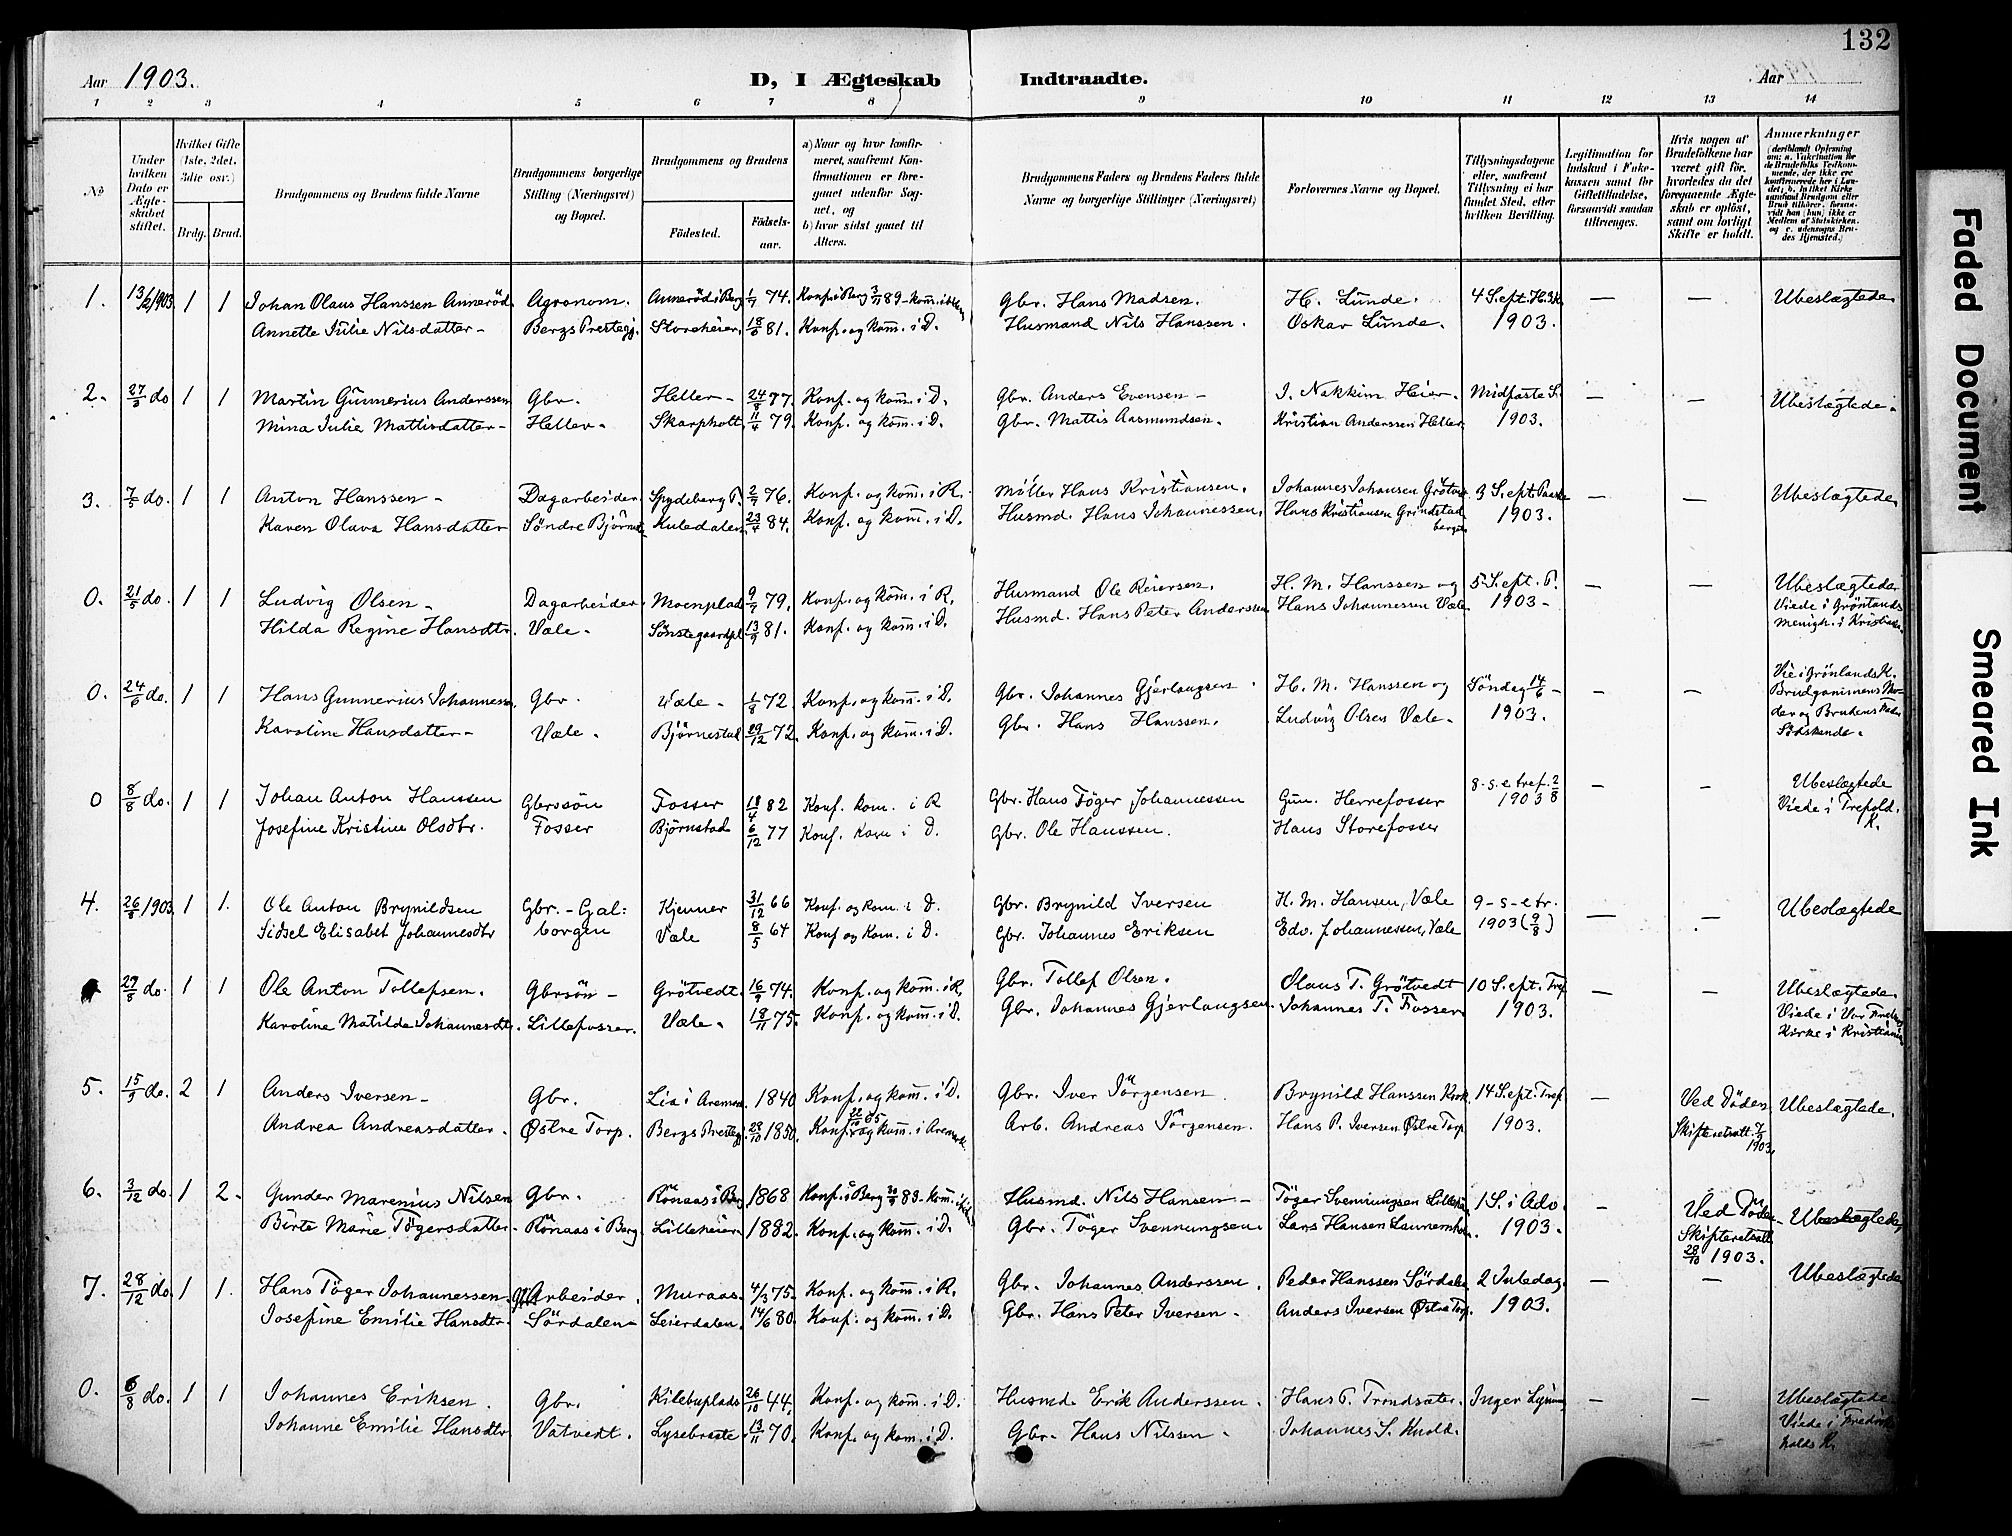 132
Aar 1903.
D, I Ægteskab Indtraadte.
Aar
1 2 3 4 5 6 7 8 9 10 11 12 13 14
No
Under hvilken Dato er Ægteskabet stiftet.
Hvilket Gifte (1ste, 2det, 3die osv.)
Brdg. Brud.
Brudgommens og Brudens fulde Navne
Brudgommens borgerlige Stilling (Næringsvei) og Bopæl.
Brudgommens og Brudens
Födested. Födselsaar.
a) Naar og hvor konfirmeret, saafremt Konfirmationen er foregaaet udenfor Sognet, og
b) hvor sidst gaaet til Alters.
Brudgommens Faders og Brudens Faders fulde Navne og borgerlige Stillinger (Næringsvei)
Forlovernes Navne og Bopæl.
Tillysningsdagene eller, saafremt Tillysning ei har fundet Sted, efter hvilken Bevilling.
Legitimation for Indskud i Enkekassen samt for Giftetilladelse, forsaavidt saadan tiltrænges.
Hvis nogen af Brudefolkene har været gift før, hvorledes da det foregaaende Ægteskab er oplöst, samt om lovligt Skifte er holdt.
Anmærkninger
1. 13/2 1903 1 1 Johan Olaus Hanssen Annerød Agronom. Annerød i Berg 1/7 74. Konf. i Berg 89 - Gbr. Hans Madsen. H. Lunde. 4 S. ept. H.3K. — — Ubeslægtede
Annette Julie Nilsdatter - Bergs Prestegj. Storeheier 81. Konf. og kom. i D. Husmand Nils Hanssen. Oskar Lunde. 1903.
2. 27/3 do 1 1 Martin Gunnerius Anderssen Gbr. Heller - 24/8 77. Konf. og kom. i D. Gbr. Anders Evensen - I. Nakkim Heier. Midfaste S. — — Ubeslægtede.
Mina Julie Mattisdatter - Heller. Skarpholt 11/4 79. Konf. og kom. i D. Gbr. Mattis Aasmundsen. Kristian Anderssen Heller. 1903.
3. 7/5 do. 1 1 Anton Hanssen - Dagarbeider Spydeberg P. 2/7 76. Konf. og kom. i R. Møller Hans Kristiansen. Johannes Johansen Grötvedt 3 S. ept. Paaske — — Ubeslægtede
Karen Olava Hansdatter Søndre Björnst. Kuledalen 23/4 84. Konf. og kom. i D. Husmd. Hans Johannessen. Hans Kristiansen Grindstadbergen 1903.
0. 21/5 do. 1 1 Ludvig Olsen - Dagarbeider Moenplads 9/7 79. Konf. og kom. i R. Husmand Ole Reiersen. H. M. Hanssen og 5 S. ept. P. — — Ubeslægtede
Hilda Regine Hansdtr. Væle - Sönstegaardpl. 13/9 81. Konf. og kom. i D. Husmd. Hans Peter Anderssen Hans Johannessen Væle 1903 - Viede i Grönlands
menigh. i Kristiania
0. 24/6 do. 1 1 Hans Gunnerius Johannessen Gbr. Væle - 1/8 72 Konf. og kom. i D. Gbr. Johannes Gjerlaugsen. H. M. Hanssen og Söndag 14/6 — — Vie i Grönlands K.
Karoline Hansdatter - Væle - Björnestad 29/12 72. Konf. og kom. i D. Gbr. Hans Hanssen. Ludvig Olsen Væle - 1903. Brudgommens Moder og Brudens Moder
Södskende.
0 8/8 do. 1 1 Johan Anton Hanssen Gbrssön Fosser 18/4 82 Konf. kom. i R Gbr. Hans Töger Johannessen Gun. Herrefosser 8-s-e tref. 2/8 — — Ubeslægtede
Josefine Kristine Olsdtr. Fosser Björnstad 6/12 77 Konf. kom i D. Gbr. Ole Hanssen. Hans Storefosser 1903 Viede i Trefold. K.
4. 26/8 1903 1 1. Ole Anton Brynildsen Gbr. - Gal: Kjenner 31/12 66 Konf. og kom. i D. Gbr. Brynild Iversen H. M. Hansen, Væle 9-s-e tr. — — Ubeslægtede
Sidsel Elisabet Johannesdtr borgen Væle 8/5 64 Konf og Kom. i D. Gbr. Johannes Eriksen Edv. Johannessen, Væle 1903 (9/8)
29/8 do. 1 1 Ole Anton Tollefsen. Gbrsön - Grötvedt. 16/9 74. Konf. og kom. i R. Gbr. Tollef Olsen. Olaus T. Grötvedt 10 S. ept. Tref — — Ubeslægtede.
Karoline Matilde Johannesdtr. Lillefosser. Væle - 18/11 75. Konf. og kom. i D. Gbr. Johannes Gjerlaugsen. Johannes T. Fosser 1903. Viede i Vor Frelsers
Kirke i Kristiania
5. 15/9 do. 2 1 Anders Iversen - Gbr. Lia i Aremark 1840 Konf. og kom. i D. Gbr. Iver Jörgensen Brynild Hanssen Kirk. 14 S. ept. Tref — Ved Döden Ubeslægtede.
Andrea Andreasdatter. Østre Torp. Bergs Prestegj. 28/10 1850. Konf. 65 og kom. i Aremark Arb. Andreas Jörgensen. Hans P. Iversen Østre Torp 1903. Skifteretsatt. 1903.
6. 3/12 do. 1 2. Gunder Marenius Nilsen Gbr. Rönaas i Berg 1868 Konf. i Berg 83. kom. Husmd. Nils Hansen - Töger Svenningsen Lilleheier 1 S. i Adv. — Ved Döden - Ubeslægtede
Birte Marie Tögersdatter - Rönaas i Berg Lilleheier 1882. Konf. og kom. i D. Gbr. Töger Svenningsen. Lars Hansen 1903. Skifteretsatt.
28/10 1903.
7. 28/12 do. 1 1. Hans Töger Johannessen - Arbeider. Muraas. 4/3 75. Konf. og kom. i R. Gbr. Johannes Anderssen. Peder Hanssen Sördalen 2 Juledag. — — Ubeslægtede
Josefine Emilie Hansdtr. Sördalen - Leierdalen. 14/6 80. Konf. og kom. i D. Gbr. Hans Peter Iversen - Anders Iversen Østre Torp. 1903.
0. 6/8 do. 1 1 Johannes Eriksen. Gbr. Kilebuplads 26/10 44. Konf. og kom. i D. Husmd. Erik Anderssen. Hans P. Trondsæter. Ingen Lysning — — Ubeslægtede
Johanne Emilie Hansdtr Vatvedt. Lysebraate 13/11 70. Konf. og kom. i D. Gbr. Hans Nilssen - Johannes S. Knold. Viede i Fredriks
halds K.
Faded Document
Smeared Ink